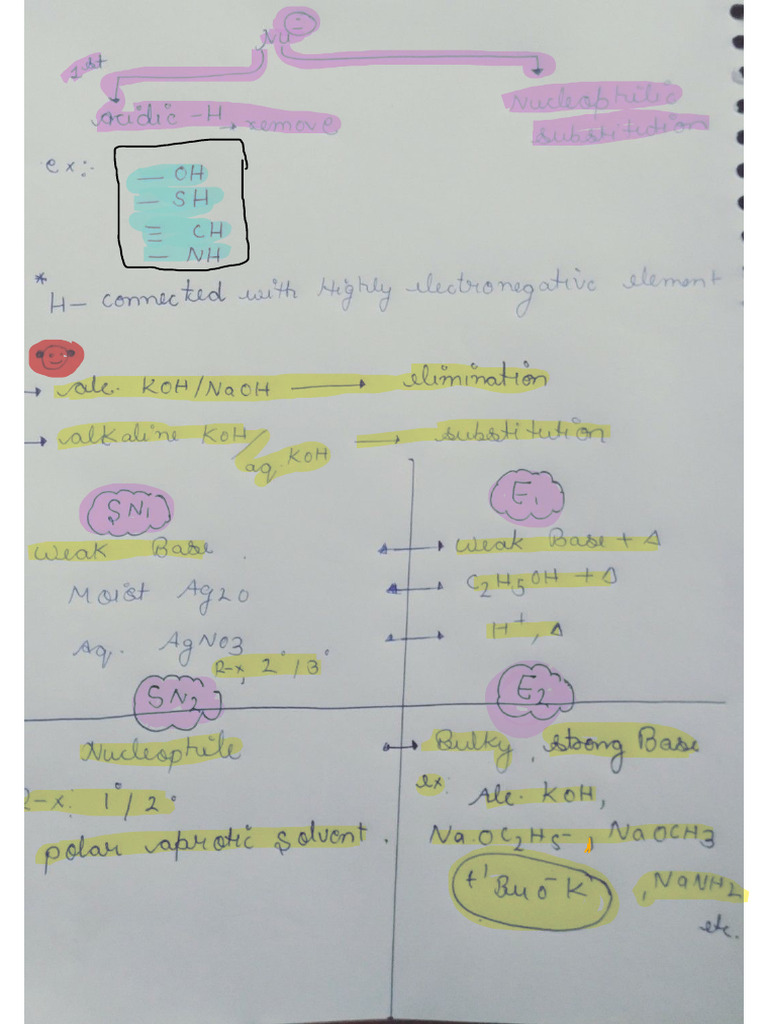 Nu⊖
1st
acidic -H → remove
Nucleophilic
substitution
ex:-
— OH
— SH
≡ CH
— NH
* H- connected with Highly electronegative element
→ alc. KOH/NaOH → elimination
→ alkaline KOH/ aq. KOH → substitution
SN1
Weak Base
Moist Ag2O
Aq. AgNO3
R-x, 2°/3°
E1
→ weak Base + Δ
→ C2H5OH + Δ
→ H+, Δ
SN2
Nucleophile
R-x: 1°/2°
polar aprotic solvent.
E2
→ Bulky, strong Base
ex: Alc. KOH,
NaOC2H5-, NaOCH3
t' BuO- K+, NaNH2
etc.